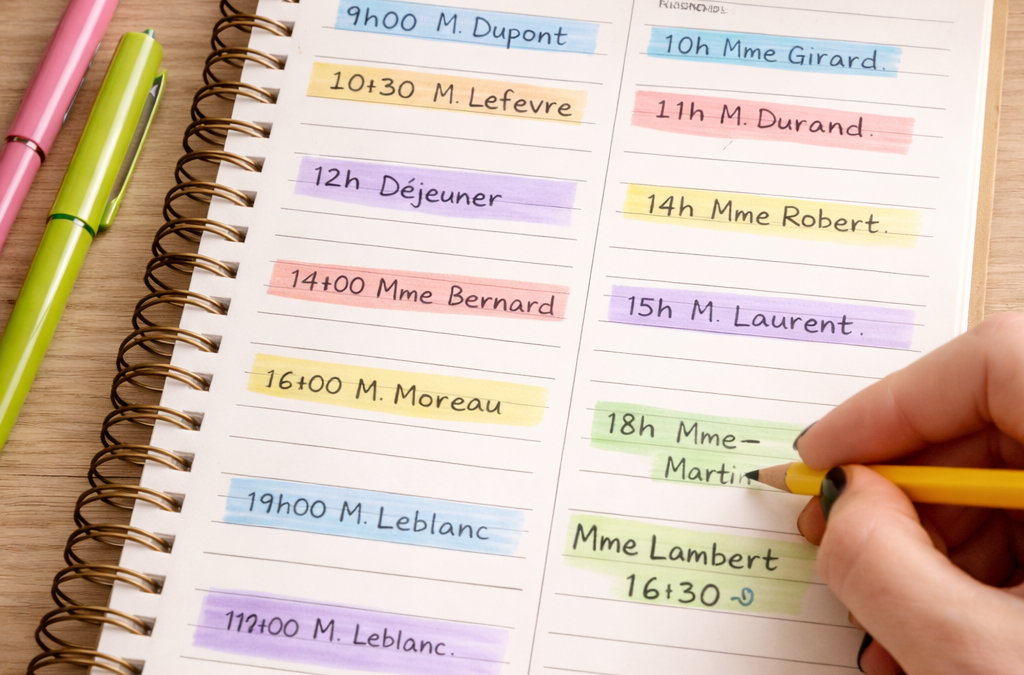 9h00 M. Dupont
10+30 M. Lefevre
12h Déjeuner
14+00 Mme Bernard
16+00 M. Moreau
19h00 M. Leblanc
M. Leblanc.
10h Mme Girard.
11h M. Durand.
14h Mme Robert.
15h M. Laurent.
18h Mme–
Martin
Mme Lambert
16+30